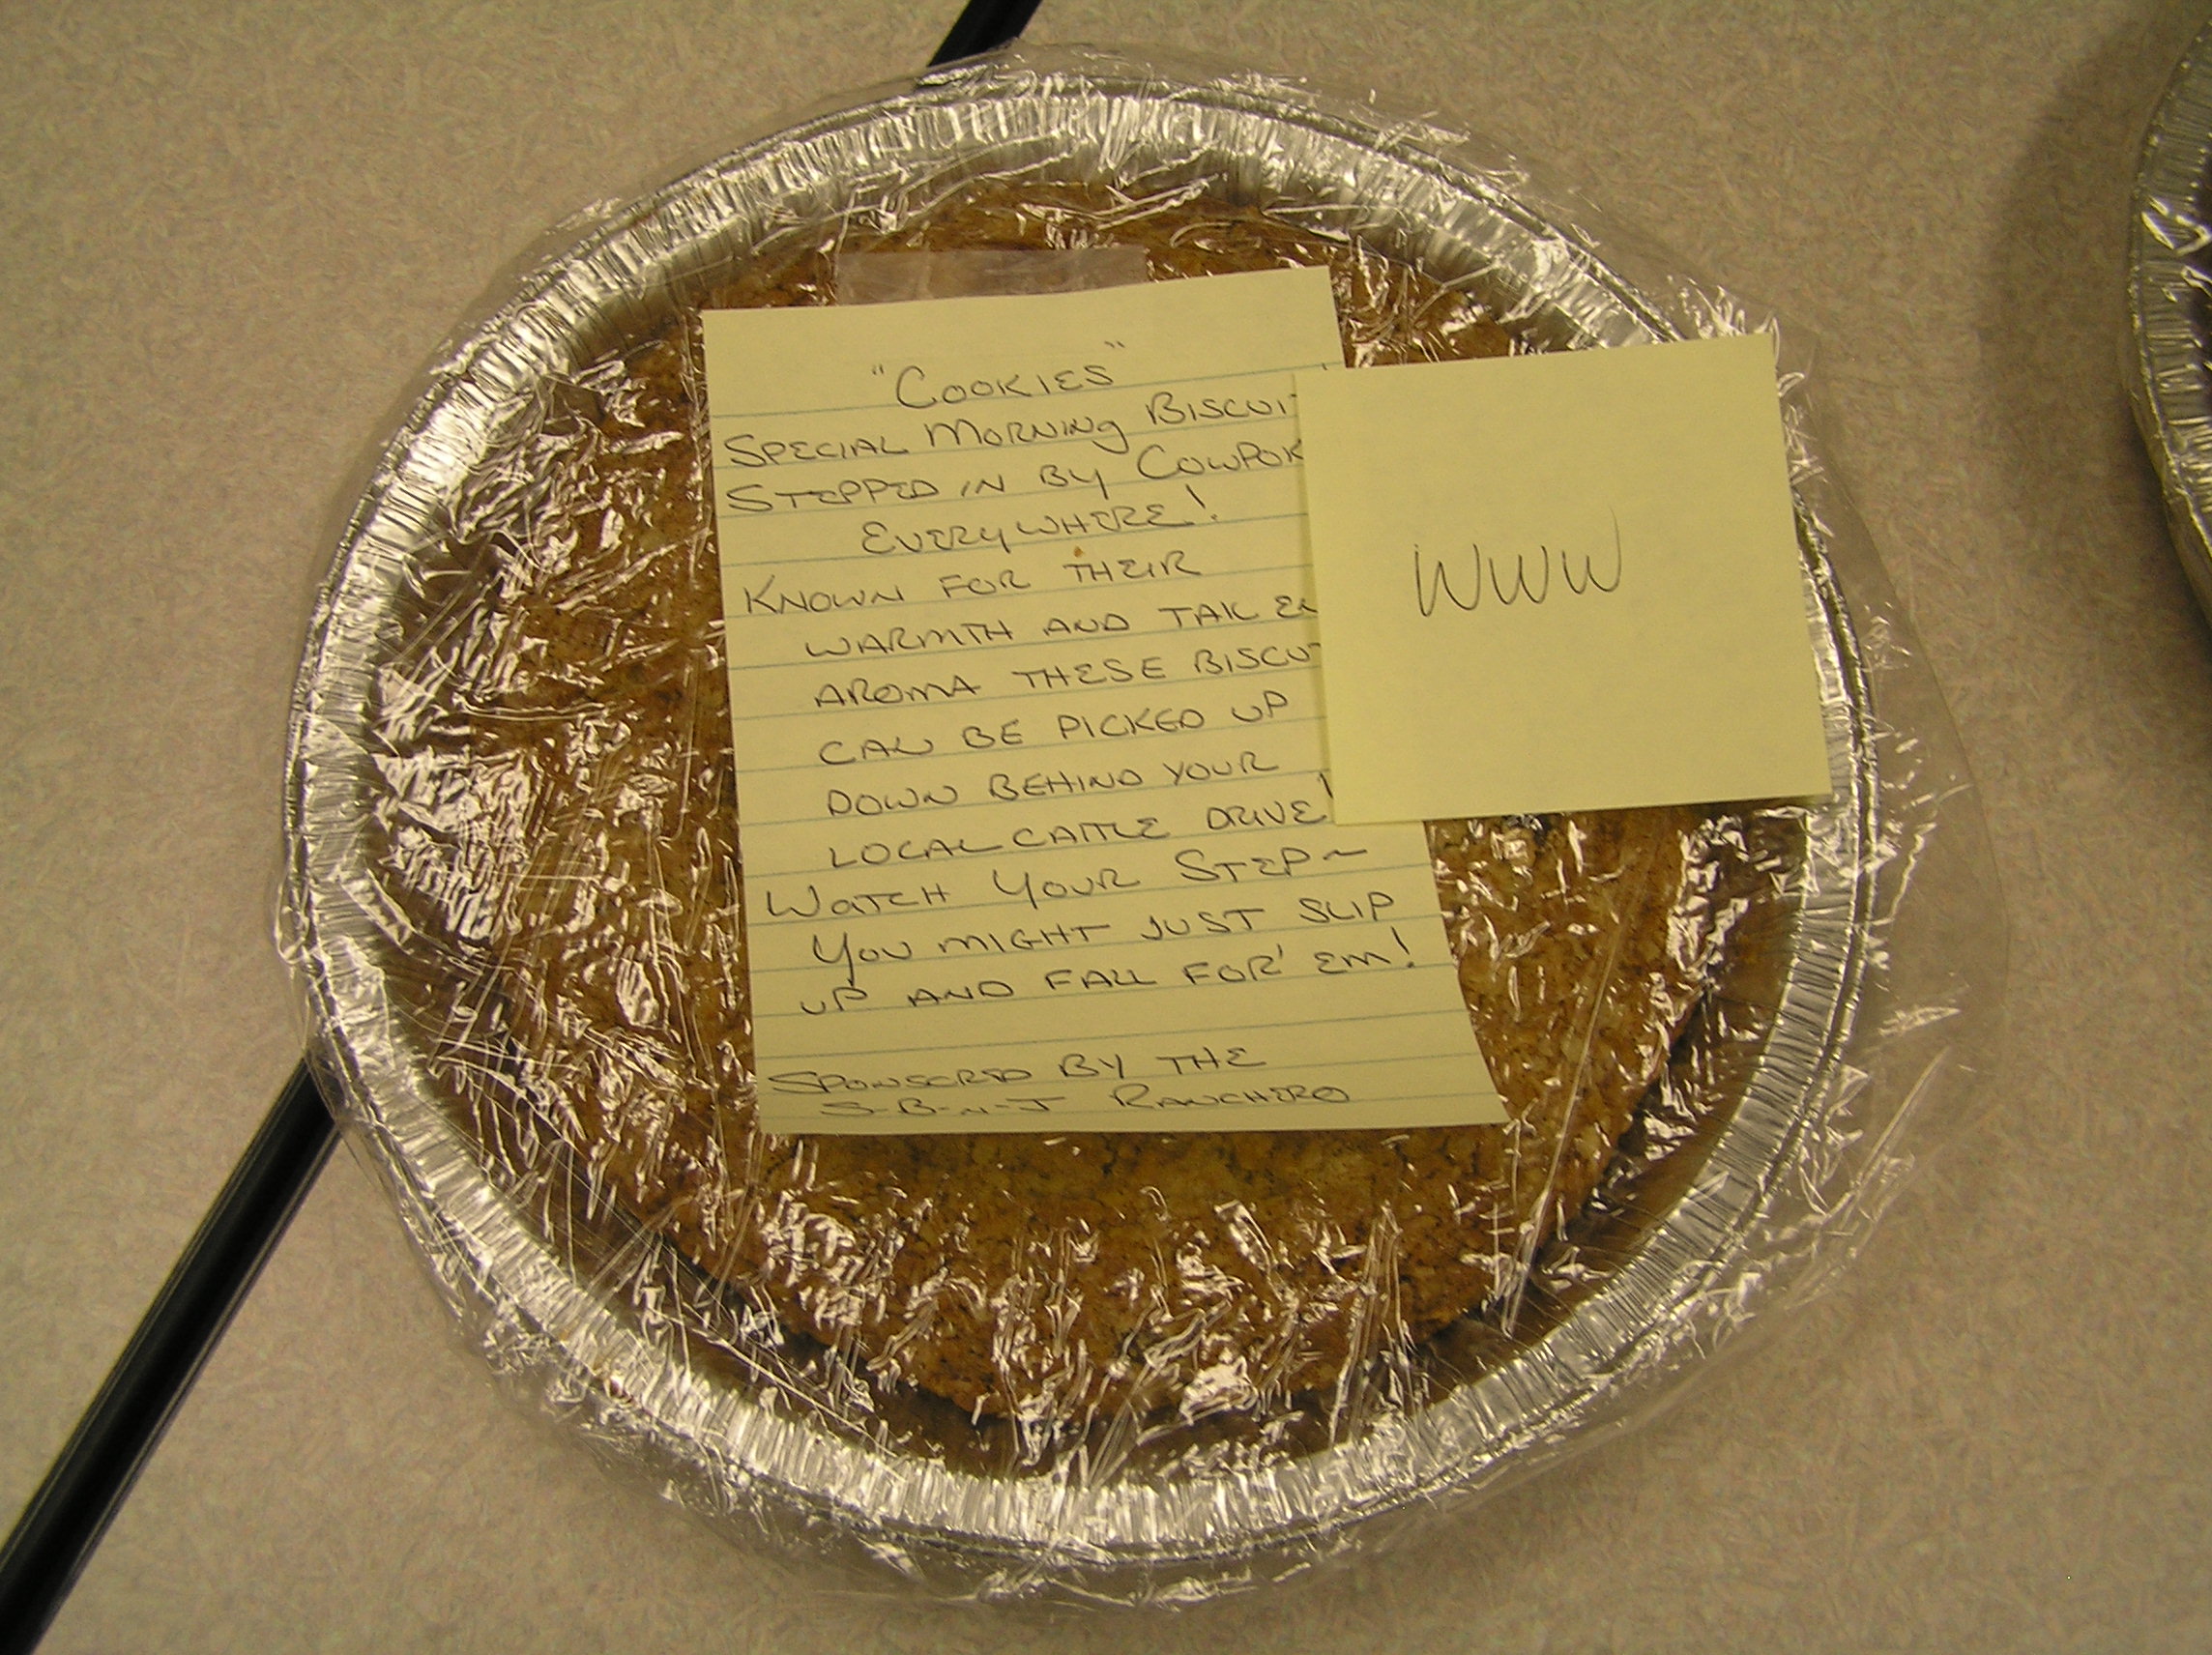 "COOKIES"
SPECIAL MORNING BISCUIT
STEPPED IN BY COWPOK
EVERYWHERE!
KNOWN FOR THEIR
WARMTH AND TAIL EN
AROMA THESE BISCUI
CAN BE PICKED UP
DOWN BEHIND YOUR
LOCAL CATTLE DRIVE!
WATCH YOUR STEP~
YOU MIGHT JUST SLIP
UP AND FALL FOR' EM!
SPONSERED BY THE
S-B-N-J RANCHERO
WWW